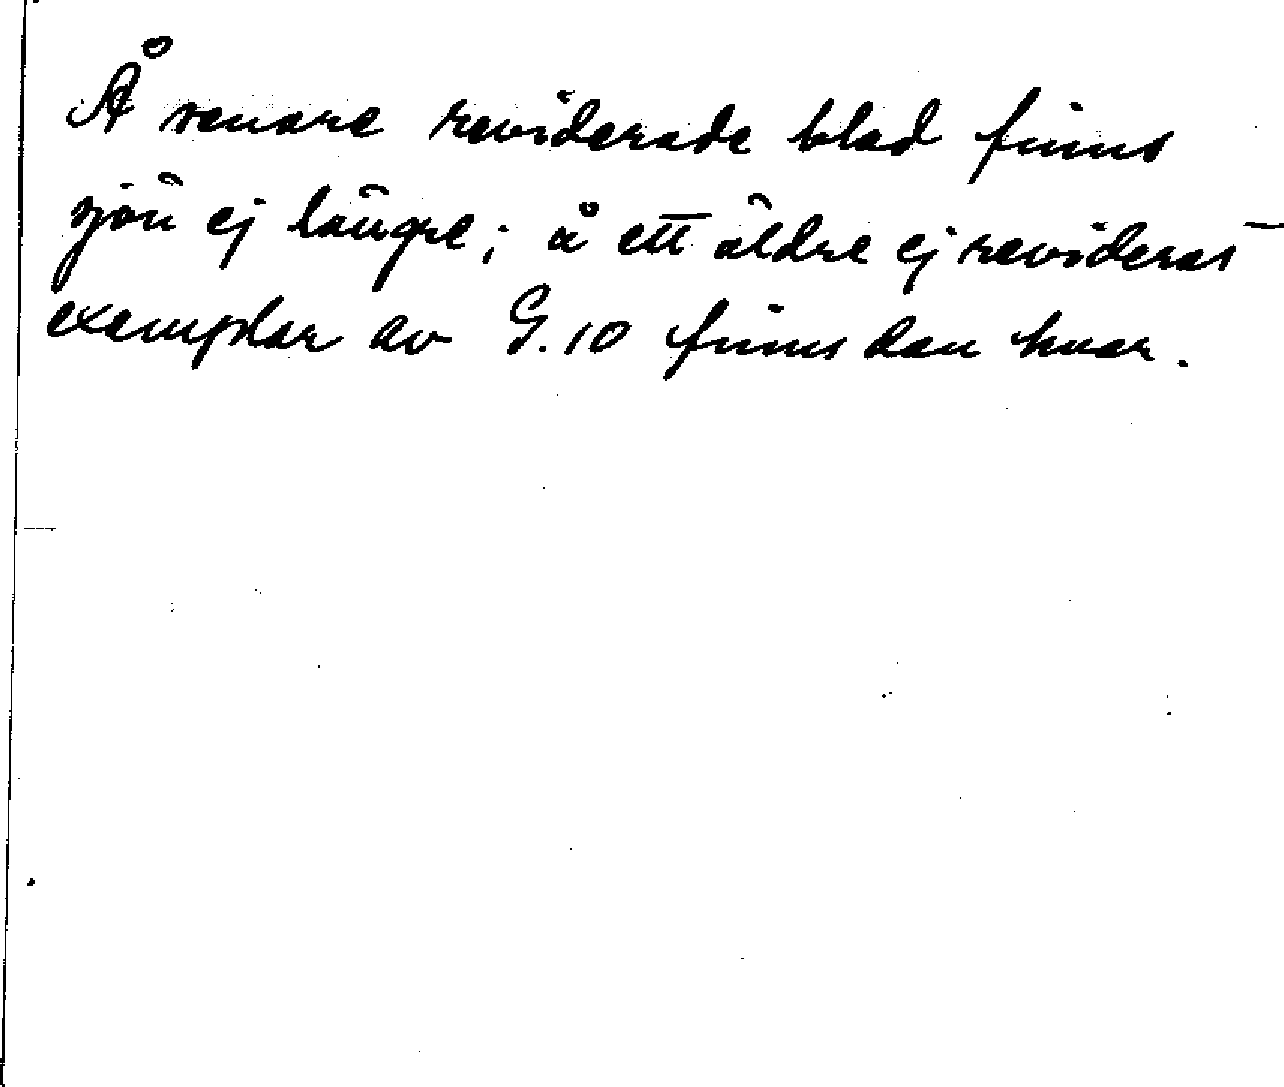 Å senare reviderade blad finns
sjön ej längre; å ett äldre ej reviderat
exemplar av G.10 finns den kvar.